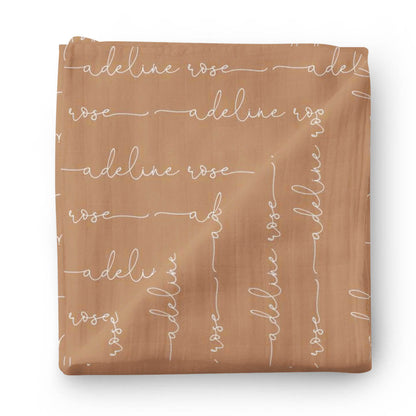 adeline rose adel
rose adeline ros
adeline rose
rose ad
adeli
rose
rose
adeline
ad
rose
adeline rose
adeline ros
rose